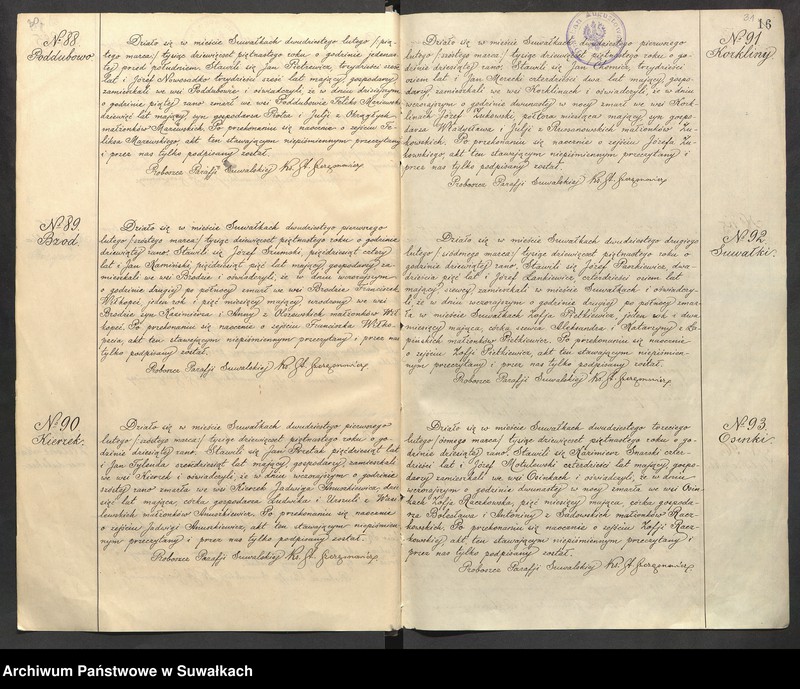 № 88.
Poddubowo
Działo się w mieście Suwałkach dwudziestego lutego /piątego marca/ tysiąc dziewięćset piętnastego roku o godzinie jedenastej przed południem. Stawili się Jan Pietrewicz, trzydzieści sześć
lat i Józef Nowosadko trzydzieści sześć lat mający, gospodarzy,
zamieszkali we wsi Poddubowie i oświadczyli, że w dniu dzisiejszym
o godzinie piątej rano zmarł we wsi Poddubowie Feliks Marzewski,
dziewięć lat mający, syn gospodarza Piotra i Julji z
małżonków Marzewskich. Po przekonaniu się naocznie o zejściu Feliksa Marzewskiego, akt ten stawającym niepiśmiennym przeczytany
i przez nas tylko podpisany został.
Proboszcz Parafji Suwalskiej Ks. St.
№ 89.
Brod.
Działo się w mieście Suwałkach dwudziestego pierwszego
lutego /szóstego marca/ tysiąc dziewięćset piętnastego roku o godzinie
dziewiątej rano. Stawili się Józef pięćdziesiąt cztery
lat i Jan Kamiński, pięćdziesiąt pięć lat mający, gospodarzy, zamieszkali we wsi Brodzie i oświadczyli, że w dniu wczorajszym
o godzinie drugiej po północy zmarł we wsi Brodzie Franciszek
jeden rok i pięć miesięcy mający, urodzony we wsi
Brodzie syn Kazimierza i Anny z małżonków
Po przekonaniu się naocznie o zejściu Franciszka
akt ten stawającym niepiśmiennym przeczytany i przez nas
tylko podpisany został.
Proboszcz Parafji Suwalskiej Ks. St.
№ 90
Kierzek.
Działo się w mieście Suwałkach dwudziestego pierwszego
lutego /szóstego marca/ tysiąc dziewięćset piętnastego roku o godzinie dziesiątej rano. Stawili się Jan pięćdziesiąt lat
i Jan Tylenda sześćdziesiąt lat mający, gospodarzy, zamieszkali
we wsi Kierzek i oświadczyli, że w dniu wczorajszym o godzinie
szóstej rano zmarła we wsi Kierzek Jadwiga
lat mająca, córka gospodarza Ludwika i Urszuli z
małżonków Po przekonaniu się naocznie
o zejściu Jadwigi akt ten stawającym niepiśmiennym przeczytany i przez nas tylko podpisany został.
Proboszcz Parafji Suwalskiej Ks. St.
31 16
№ 91
Korkliny
Działo się w mieście Suwałkach dwudziestego pierwszego
lutego /szóstego marca/ tysiąc dziewięćset piętnastego roku o godzinie dziesiątej rano. Stawili się Jan trzydzieści
osiem lat i Jan Morecki czterdzieści dwa lat mający, gospodarzy, zamieszkali we wsi Korklinach i oświadczyli, że w dniu
wczorajszym o godzinie dwunastej w nocy zmarł we wsi Korklinach Józef Żukowski, półtora miesiąca mający, syn gospodarza Władysława i Julji z małżonków Żukowskich. Po przekonaniu się naocznie o zejściu Józefa Żukowskiego, akt ten stawającym niepiśmiennym przeczytany i
przez nas tylko podpisany został.
Proboszcz Parafji Suwalskiej Ks. St.
№ 92
Suwałki.
Działo się w mieście Suwałkach dwudziestego drugiego
lutego /siódmego marca/ tysiąc dziewięćset piętnastego roku o
godzinie dziewiątej rano. Stawili się Józef Pankiewicz, dwadzieścia pięć lat i Józef Jankiewicz czterdzieści osiem lat
mający, szewcy, zamieszkali w mieście Suwałkach i oświadczyli, że w dniu wczorajszym o godzinie drugiej po północy zmarła w mieście Suwałkach Zofja Pietkiewicz, jeden rok i dwa
miesięcy mająca, córka szewca Aleksandra i Katarzyny z
małżonków Pietkiewicz. Po przekonaniu się naocznie
o zejściu Zofji Pietkiewicz, akt ten stawającym niepiśmiennym przeczytany i przez nas tylko podpisany został.
Proboszcz Parafji Suwalskiej Ks. St.
№ 93.
Osinki.
Działo się w mieście Suwałkach dwudziestego trzeciego
lutego /ósmego marca/ tysiąc dziewięćset piętnastego roku o godzinie dziesiątej rano. Stawili się Kazimierz czterdzieści lat i Józef Motulewski czterdzieści lat mający, gospodarzy, zamieszkali we wsi Osinkach i oświadczyli, że w dniu
wczorajszym o godzinie dwunastej w nocy zmarła we wsi Osinkach Zofja Raczkowska, pięć miesięcy mająca, córka gospodarza Bolesława i Antoniny z Sadowskich małżonków Raczkowskich. Po przekonaniu się naocznie o zejściu Zofji Raczkowskiej, akt ten stawającym niepiśmiennym przeczytany i
przez nas tylko podpisany został.
Proboszcz Parafji Suwalskiej Ks. St.
Archiwum Państwowe w Suwałkach